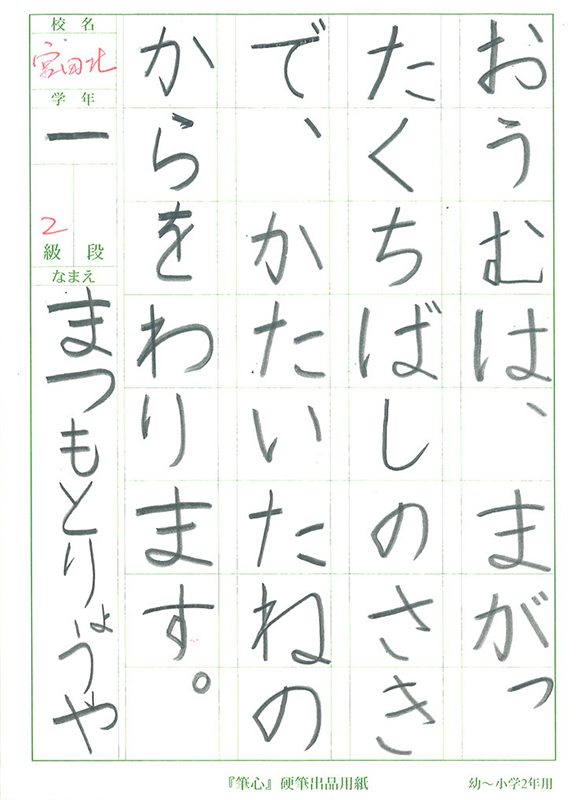 おうむは、まがっ
たくちばしのさき
で、かたいたねの
からをわります。
校名
宮田北
学年
一
2
級 段
なまえ
まつもとりょうや
『筆心』硬筆出品用紙
幼〜小学2年用